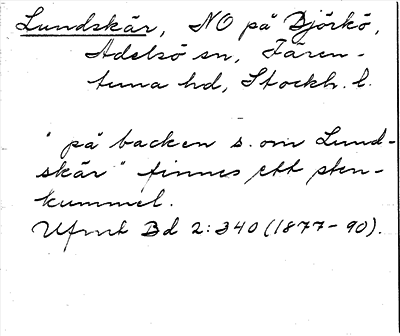 Lundskär, NO på Björkö,
Adelsö sn, Fären-
tuna hd, Stockh. l.
"på backen s. om Lund-
skär" finnes ett sten-
kummel.
Ufmt Bd 2:340 (1877-90).